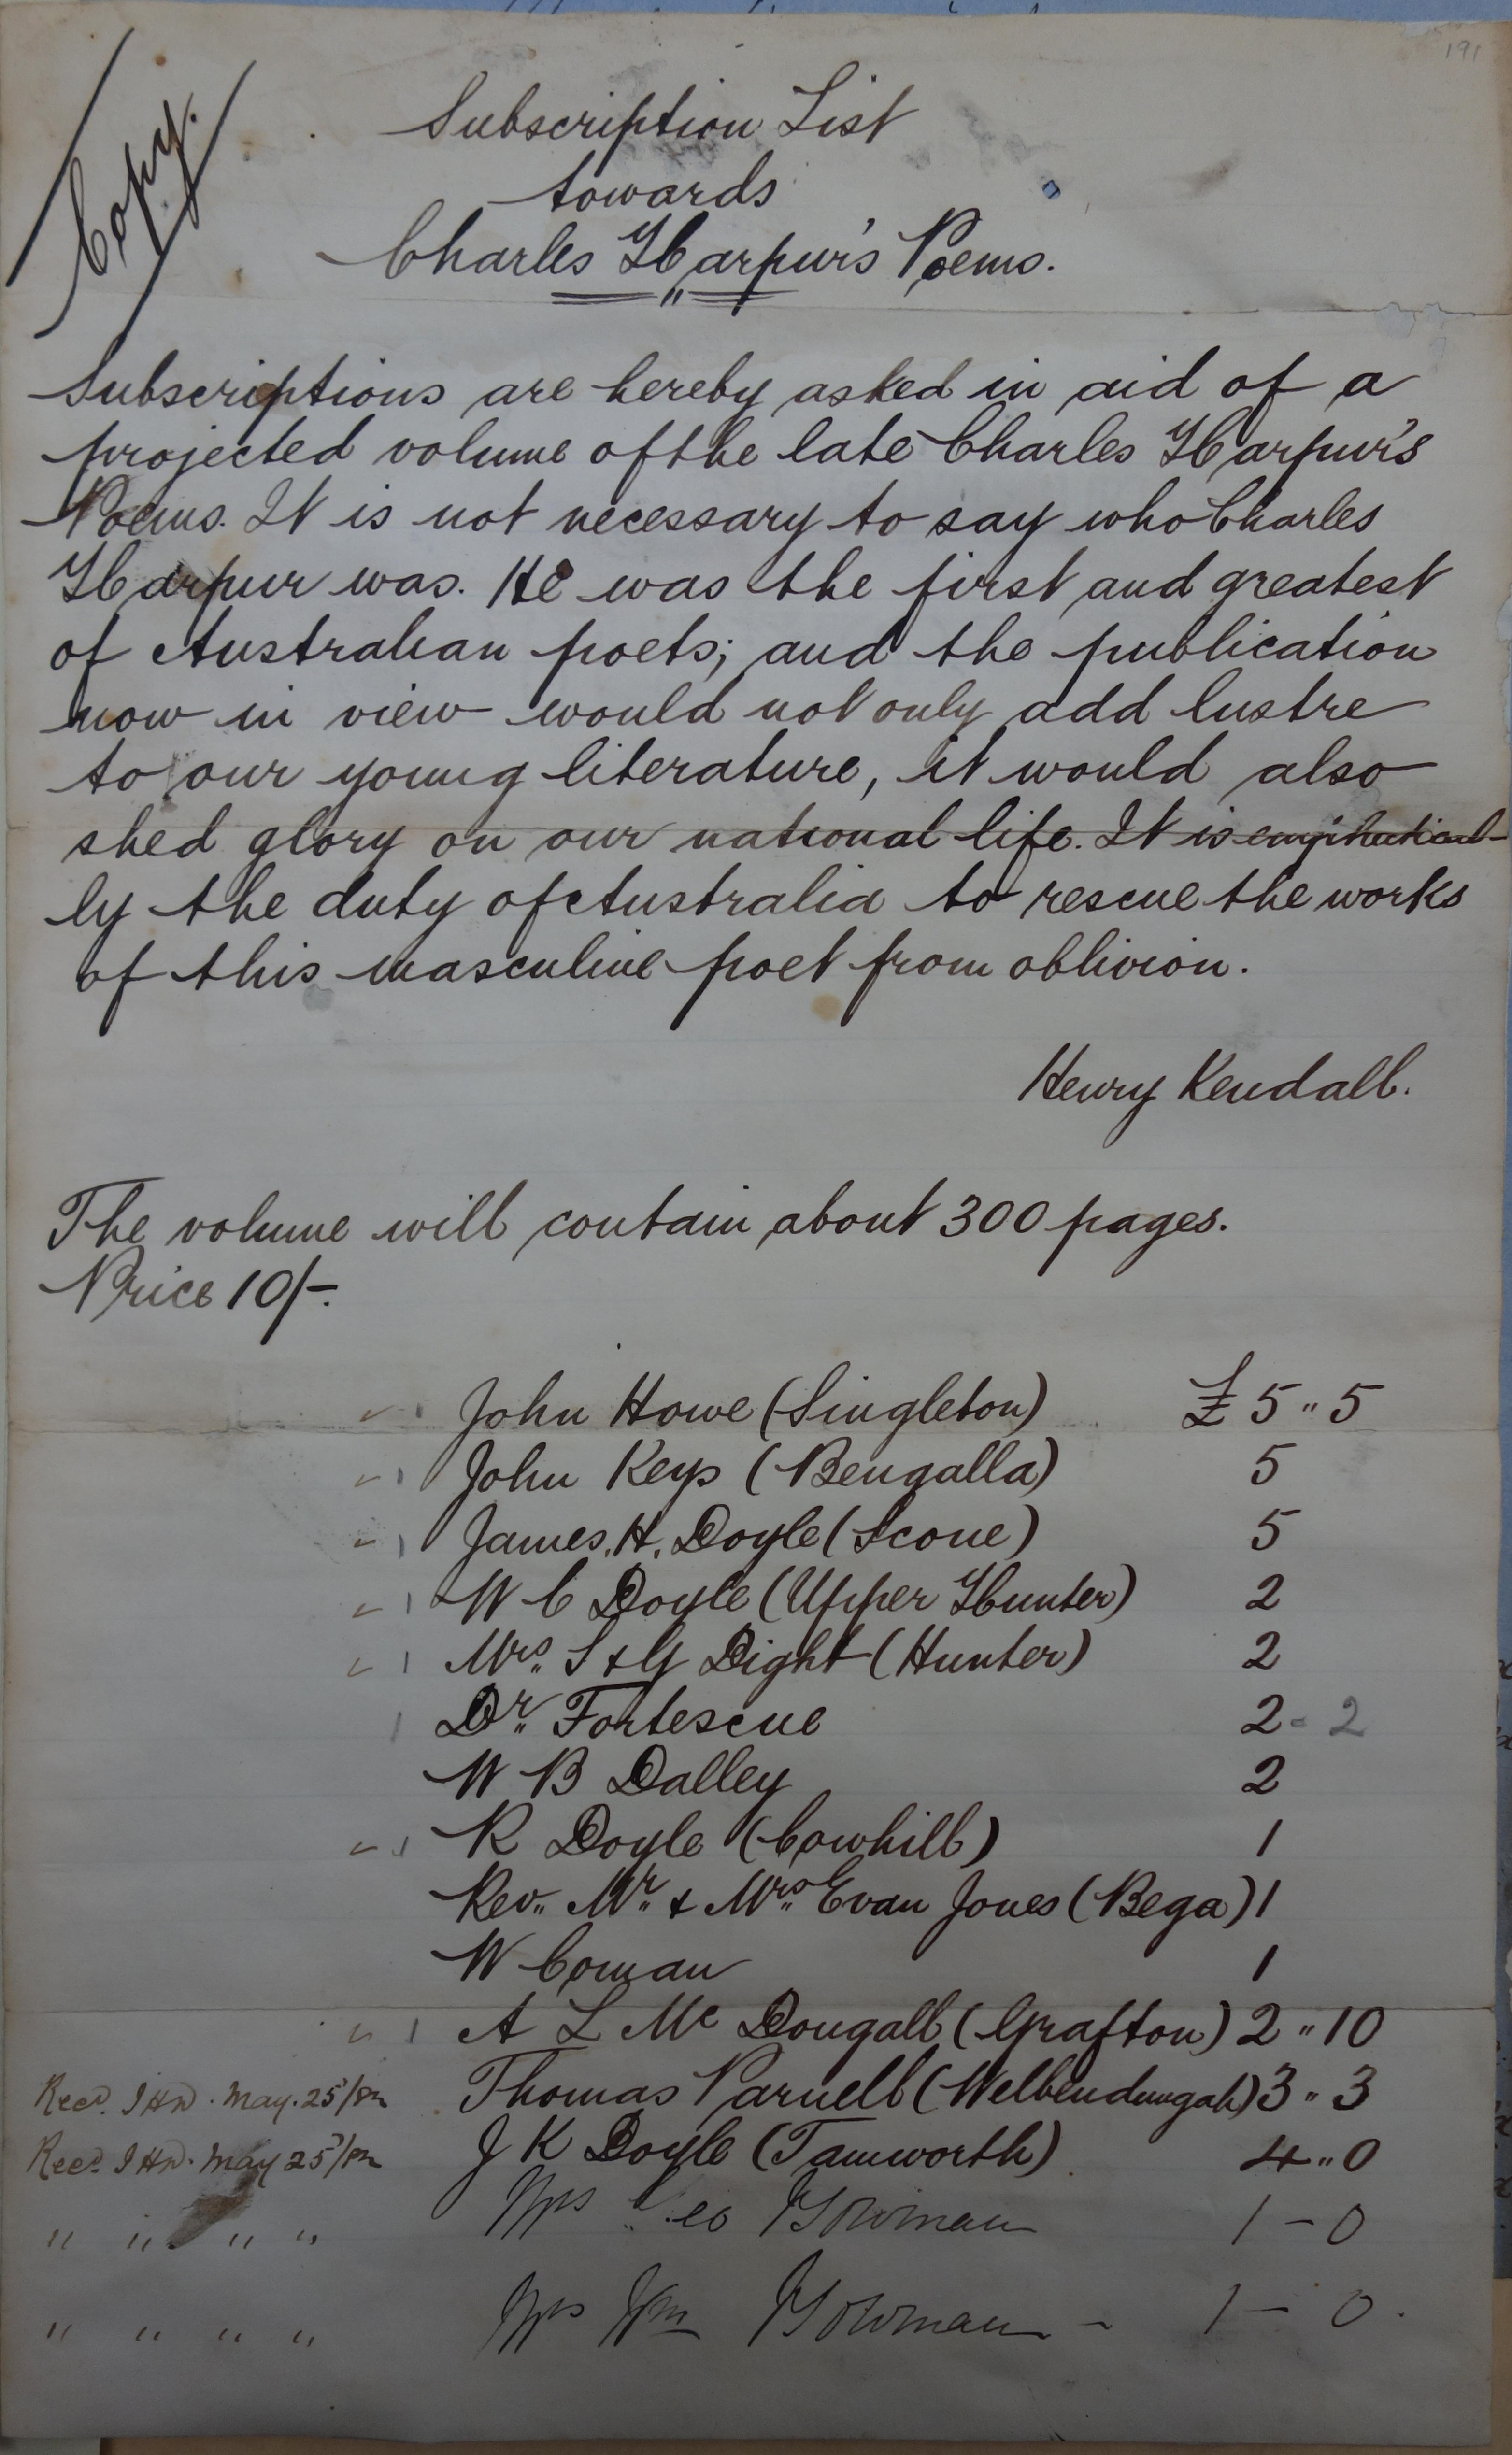 191
Copy.
Subscription List
towards
Charles Harpur's Poems.
Subscriptions are hereby asked in aid of a
projected volume of the late Charles Harpur's
Poems. It is not necessary to say who Charles
Harpur was. He was the first and greatest
of Australian poets; and the publication
now in view would not only add lustre
to our young literature, it would also
shed glory on our national life. It is emphatical-
ly the duty of Australia to rescue the works
of this masculine poet from oblivion.
Henry Kendall.
The volume will contain about 300 pages.
Price 10/-.
John Howe (Singleton) £ 5 " 5
John Keys (Bengalla) 5
James. H. Doyle (Scone) 5
W C Doyle (Upper Hunter) 2
Mrs. S & G Dight (Hunter) 2
Dr. Fortescue 2 - 2
W B Dalley 2
R Doyle (Cowhill) 1
Rev. Mr. & Mrs. Evan Jones (Bega) 1
W Coman 1
A L Mc Dougall (Grafton) 2 " 10
Recd. JHD. May. 25/82 Thomas Parnell (Welbendungah) 3 " 3
Recd. JHD. May 25/82 J K Doyle (Tamworth) 4 " 0
" " " " Mrs Geo Bowman 1 - 0
" " " " Mrs Wm Bowman - 1 - 0.